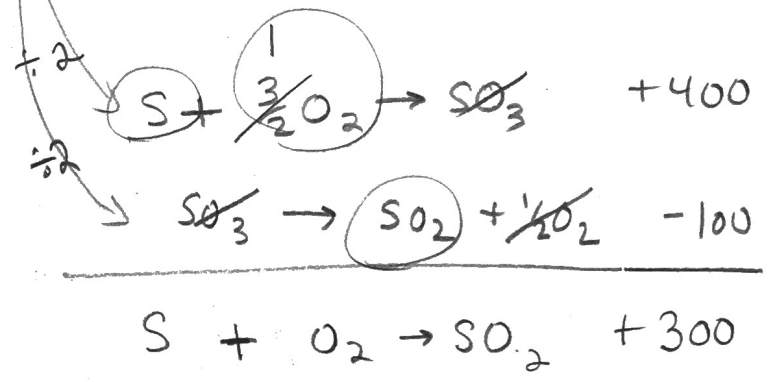 ÷ 2
1
S + 3/2 O₂ → SO₃ +400
÷2
SO₃ → SO₂ + 1/2 O₂ -100
S + O₂ → SO₂ +300